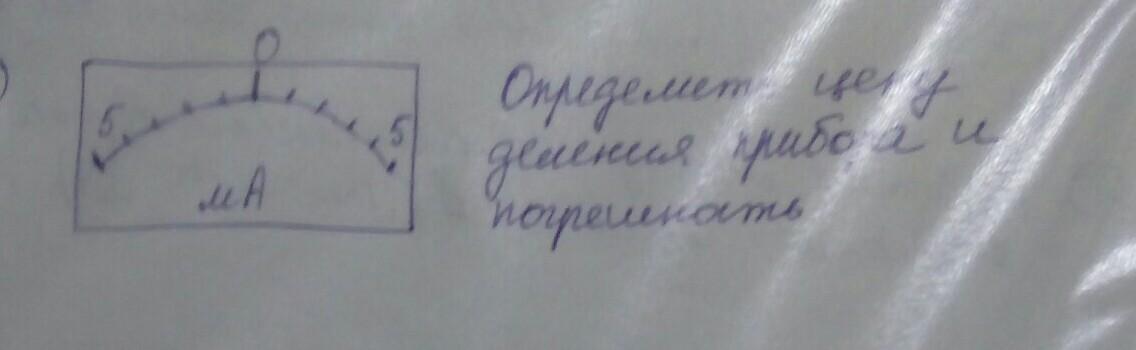 )
0
5 5
мА
Определить цену
деления прибора и
погрешность